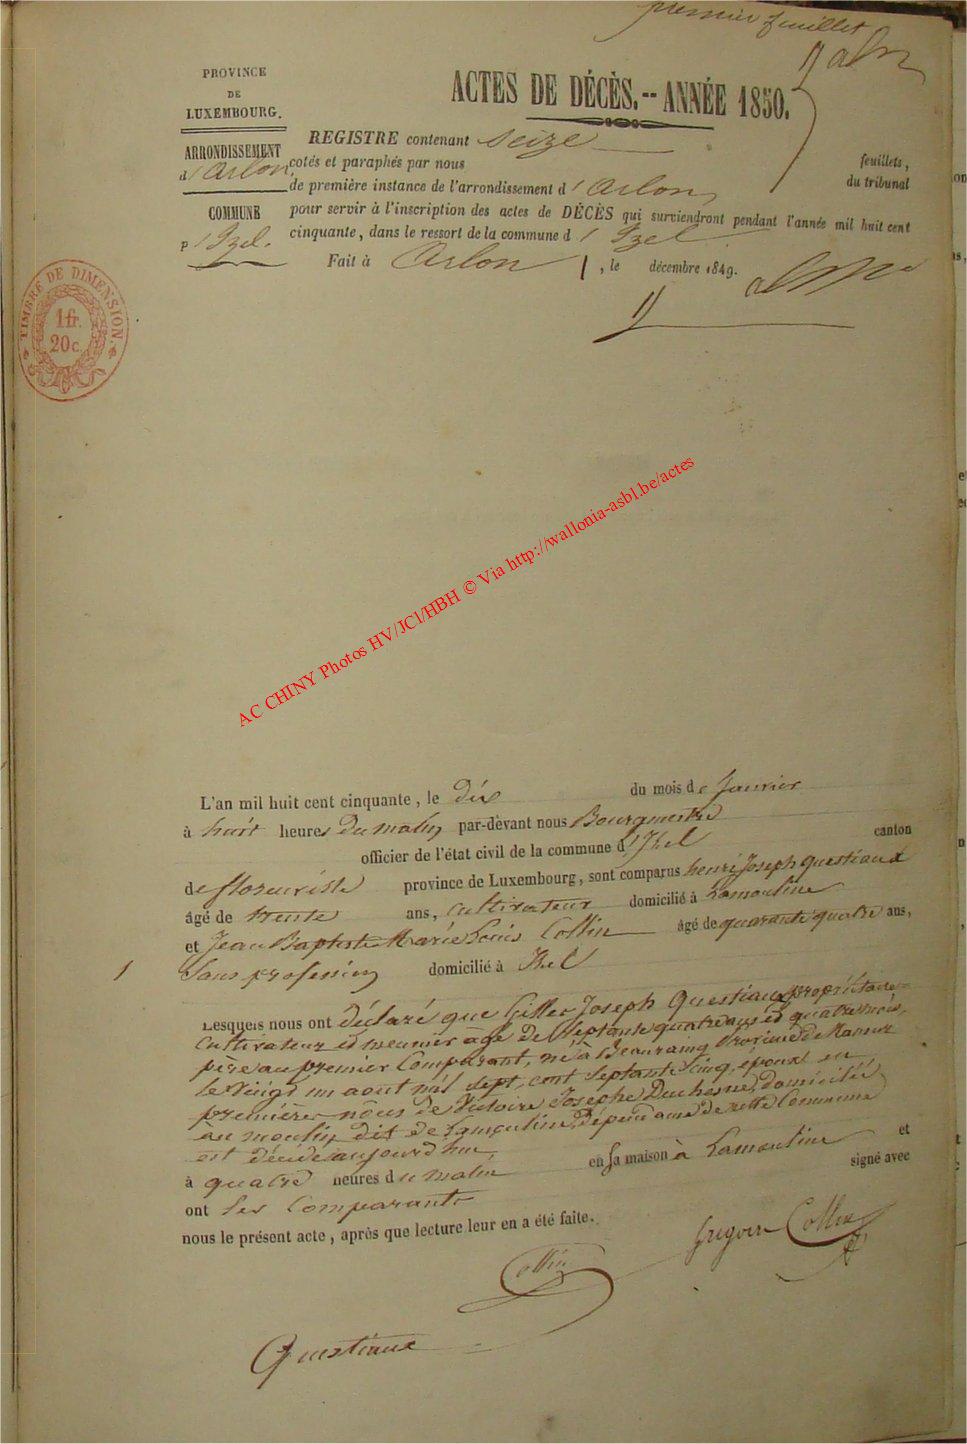 premier feuillet
PROVINCE
DE
LUXEMBOURG.
ARRONDISSEMENT
d'Arlon.
COMMUNE
d'Izel.
TIMBRE DE DIMENSION.
1 fr.
20 c.
ACTES DE DÉCÈS.-- ANNÉE 1850.
REGISTRE contenant seize feuillets,
cotés et paraphés par nous du tribunal
de première instance de l'arrondissement d'Arlon
pour servir à l'inscription des actes de DÉCÈS qui surviendront pendant l'année mil huit cent
cinquante, dans le ressort de la commune d'Izel
Fait à Arlon, le décembre 1849.
AC CHINY Photos HV/JCl/HBH © Via http://wallonia-asbl.be/actes
L'an mil huit cent cinquante, le dix du mois de Janvier
à huit heures du matin par-dèvant nous Bourgmestre
officier de l'état civil de la commune d'Izel canton
de florenville province de Luxembourg, sont comparus henri Joseph Questiaux
âgé de trente ans, cultivateur domicilié à Lamouline
et Jean Baptiste Marie Louis Collin âgé de quarante quatre ans,
1 Sans profession domicilié à Izel
Lesquels nous ont déclaré que Gilles Joseph Questiaux propriétaire
cultivateur et meunier âgé de septante quatre ans et quatre mois,
père au premier Comparant, né à Beauraing Province de Namur
le vingt un aout mil sept cent septante cinq, époux en
premières nôces de Victoire Josephe Duchesne, domicilié
au moulin dit de Lamouline, dépendance de cette Commune
est décédé aujourd'hui,
à quatre heures du matin en sa maison à Lamouline et
ont les Comparants signé avec
nous le présent acte, après que lecture leur en a été faite.
Collin
Grégoire Collin
Questiaux